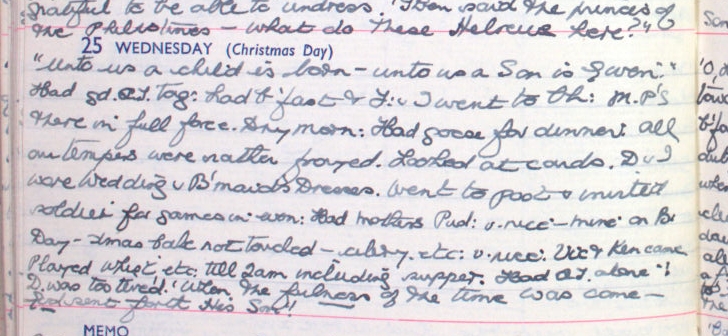 grateful to be able to undress. "Then said the princes of
the Philistines – what do these Hebrews here?"
25 WEDNESDAY (Christmas Day)
"Unto us a child is born – unto us a Son is given."
Had gd. Q.T. tog: had b'fast & J: & I went to Ch: M.P's
there in full force. Dry morn: Had goose for dinner: all
our tempers were rather frayed. Looked at cards. D & I
wore Wedding & B'maids Dresses. Went to post & invited
soldier for games in even: Had mothers Pud: v. nice – mine on Bx
Day – Xmas cake not touched – celery. etc: v. nice. Vic & Ken came
Played whist, etc. till 2am including supper. Had Q.T. alone
D. was too tired. "When the fulness of the time was come –
God sent forth His Son"!
MEMO